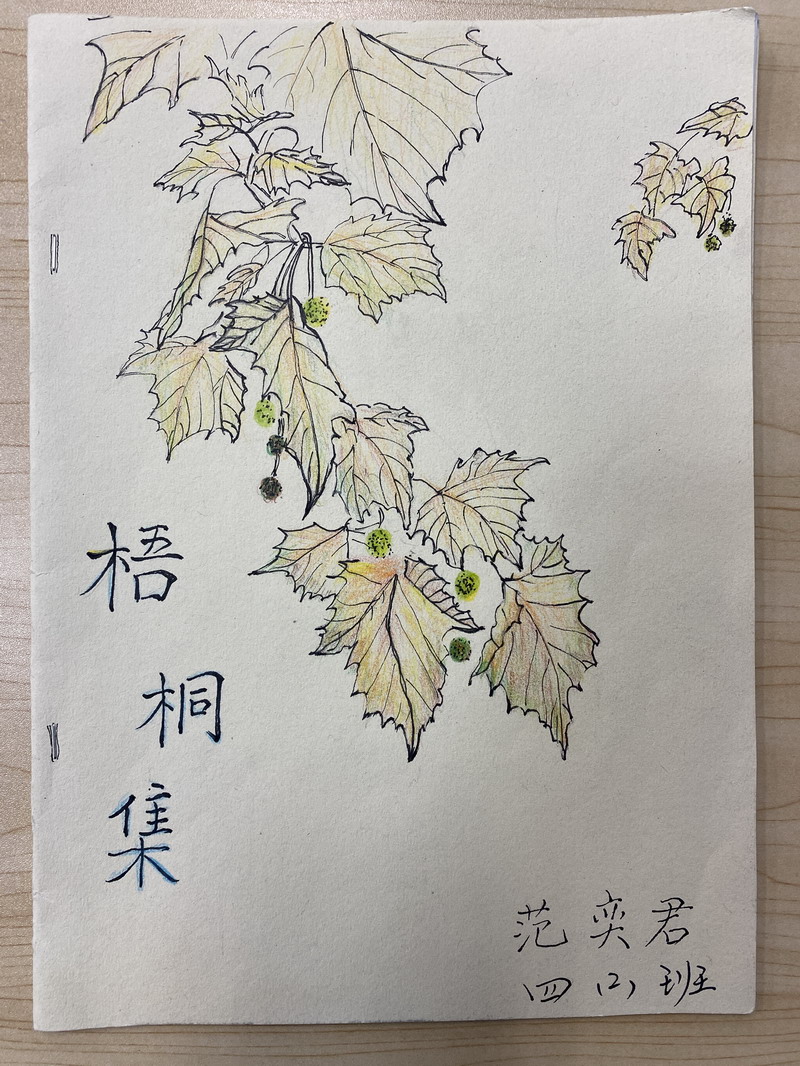 梧桐集
范奕君
四(2)班